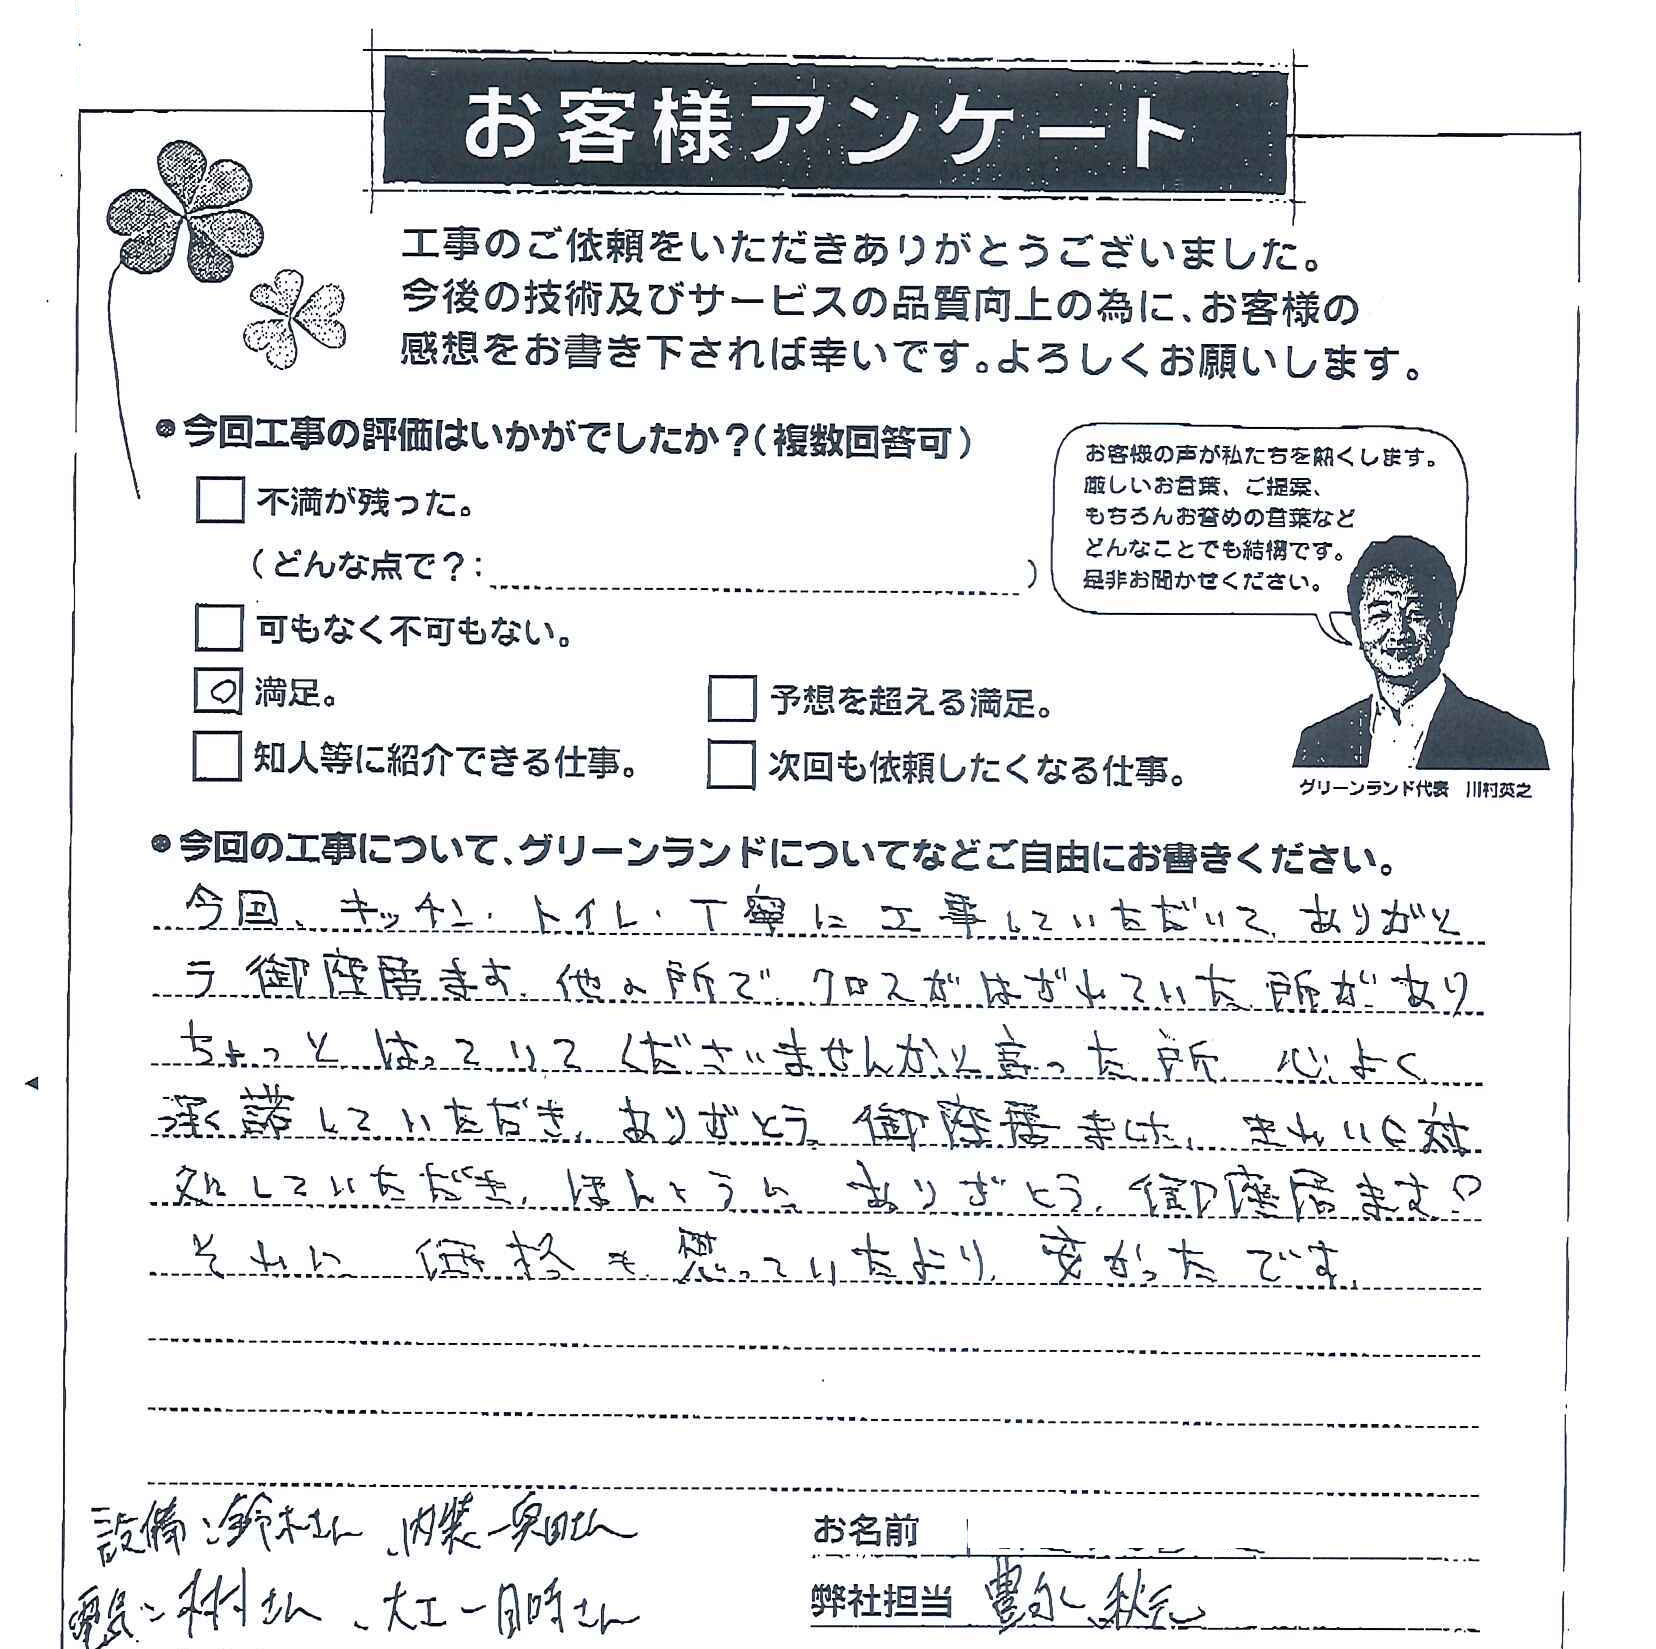 お客様アンケート
工事のご依頼をいただきありがとうございました。
今後の技術及びサービスの品質向上の為に、お客様の
感想をお書き下されば幸いです。よろしくお願いします。
今回工事の評価はいかがでしたか？（複数回答可）
不満が残った。
（どんな点で？： ）
可もなく不可もない。
満足。
予想を超える満足。
知人等に紹介できる仕事。
次回も依頼したくなる仕事。
お客様の声が私たちを熱くします。
厳しいお言葉、ご提案、
もちろんお誉めの言葉など
どんなことでも結構です。
是非お聞かせください。
グリーンランド代表 川村英之
今回の工事について、グリーンランドについてなどご自由にお書きください。
今回、キッチン・トイレ・丁寧に工事していただいて、ありがと
う御座居ます。他の所で、クロスがはがれていた所があり
ちょっとはってくださいませんかと言った所 心よく
承諾していただき、ありがとう御座居ました。きれいに対
処していただき、ほんとうに ありがとう御座居ます♡
それに 価格も思っていたより 安かったです。
設備：鈴木さん、内装ー奥田さん
電気：木村さん、大工ー目時さん
お名前
弊社担当 豊永、秋元